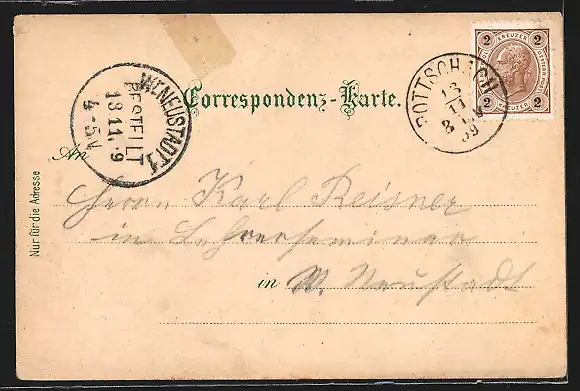 2 KREUZER 2
2 KREUZER 2
POTTSCHACH
13
11
8
99
WR. NEUSTADT 1
BESTELLT
13.11.9
4-5N
Correspondenz-Karte.
An
Herrn Karl Reisner
in Lehrerseminar
in W. Neustadt
Nur für die Adresse